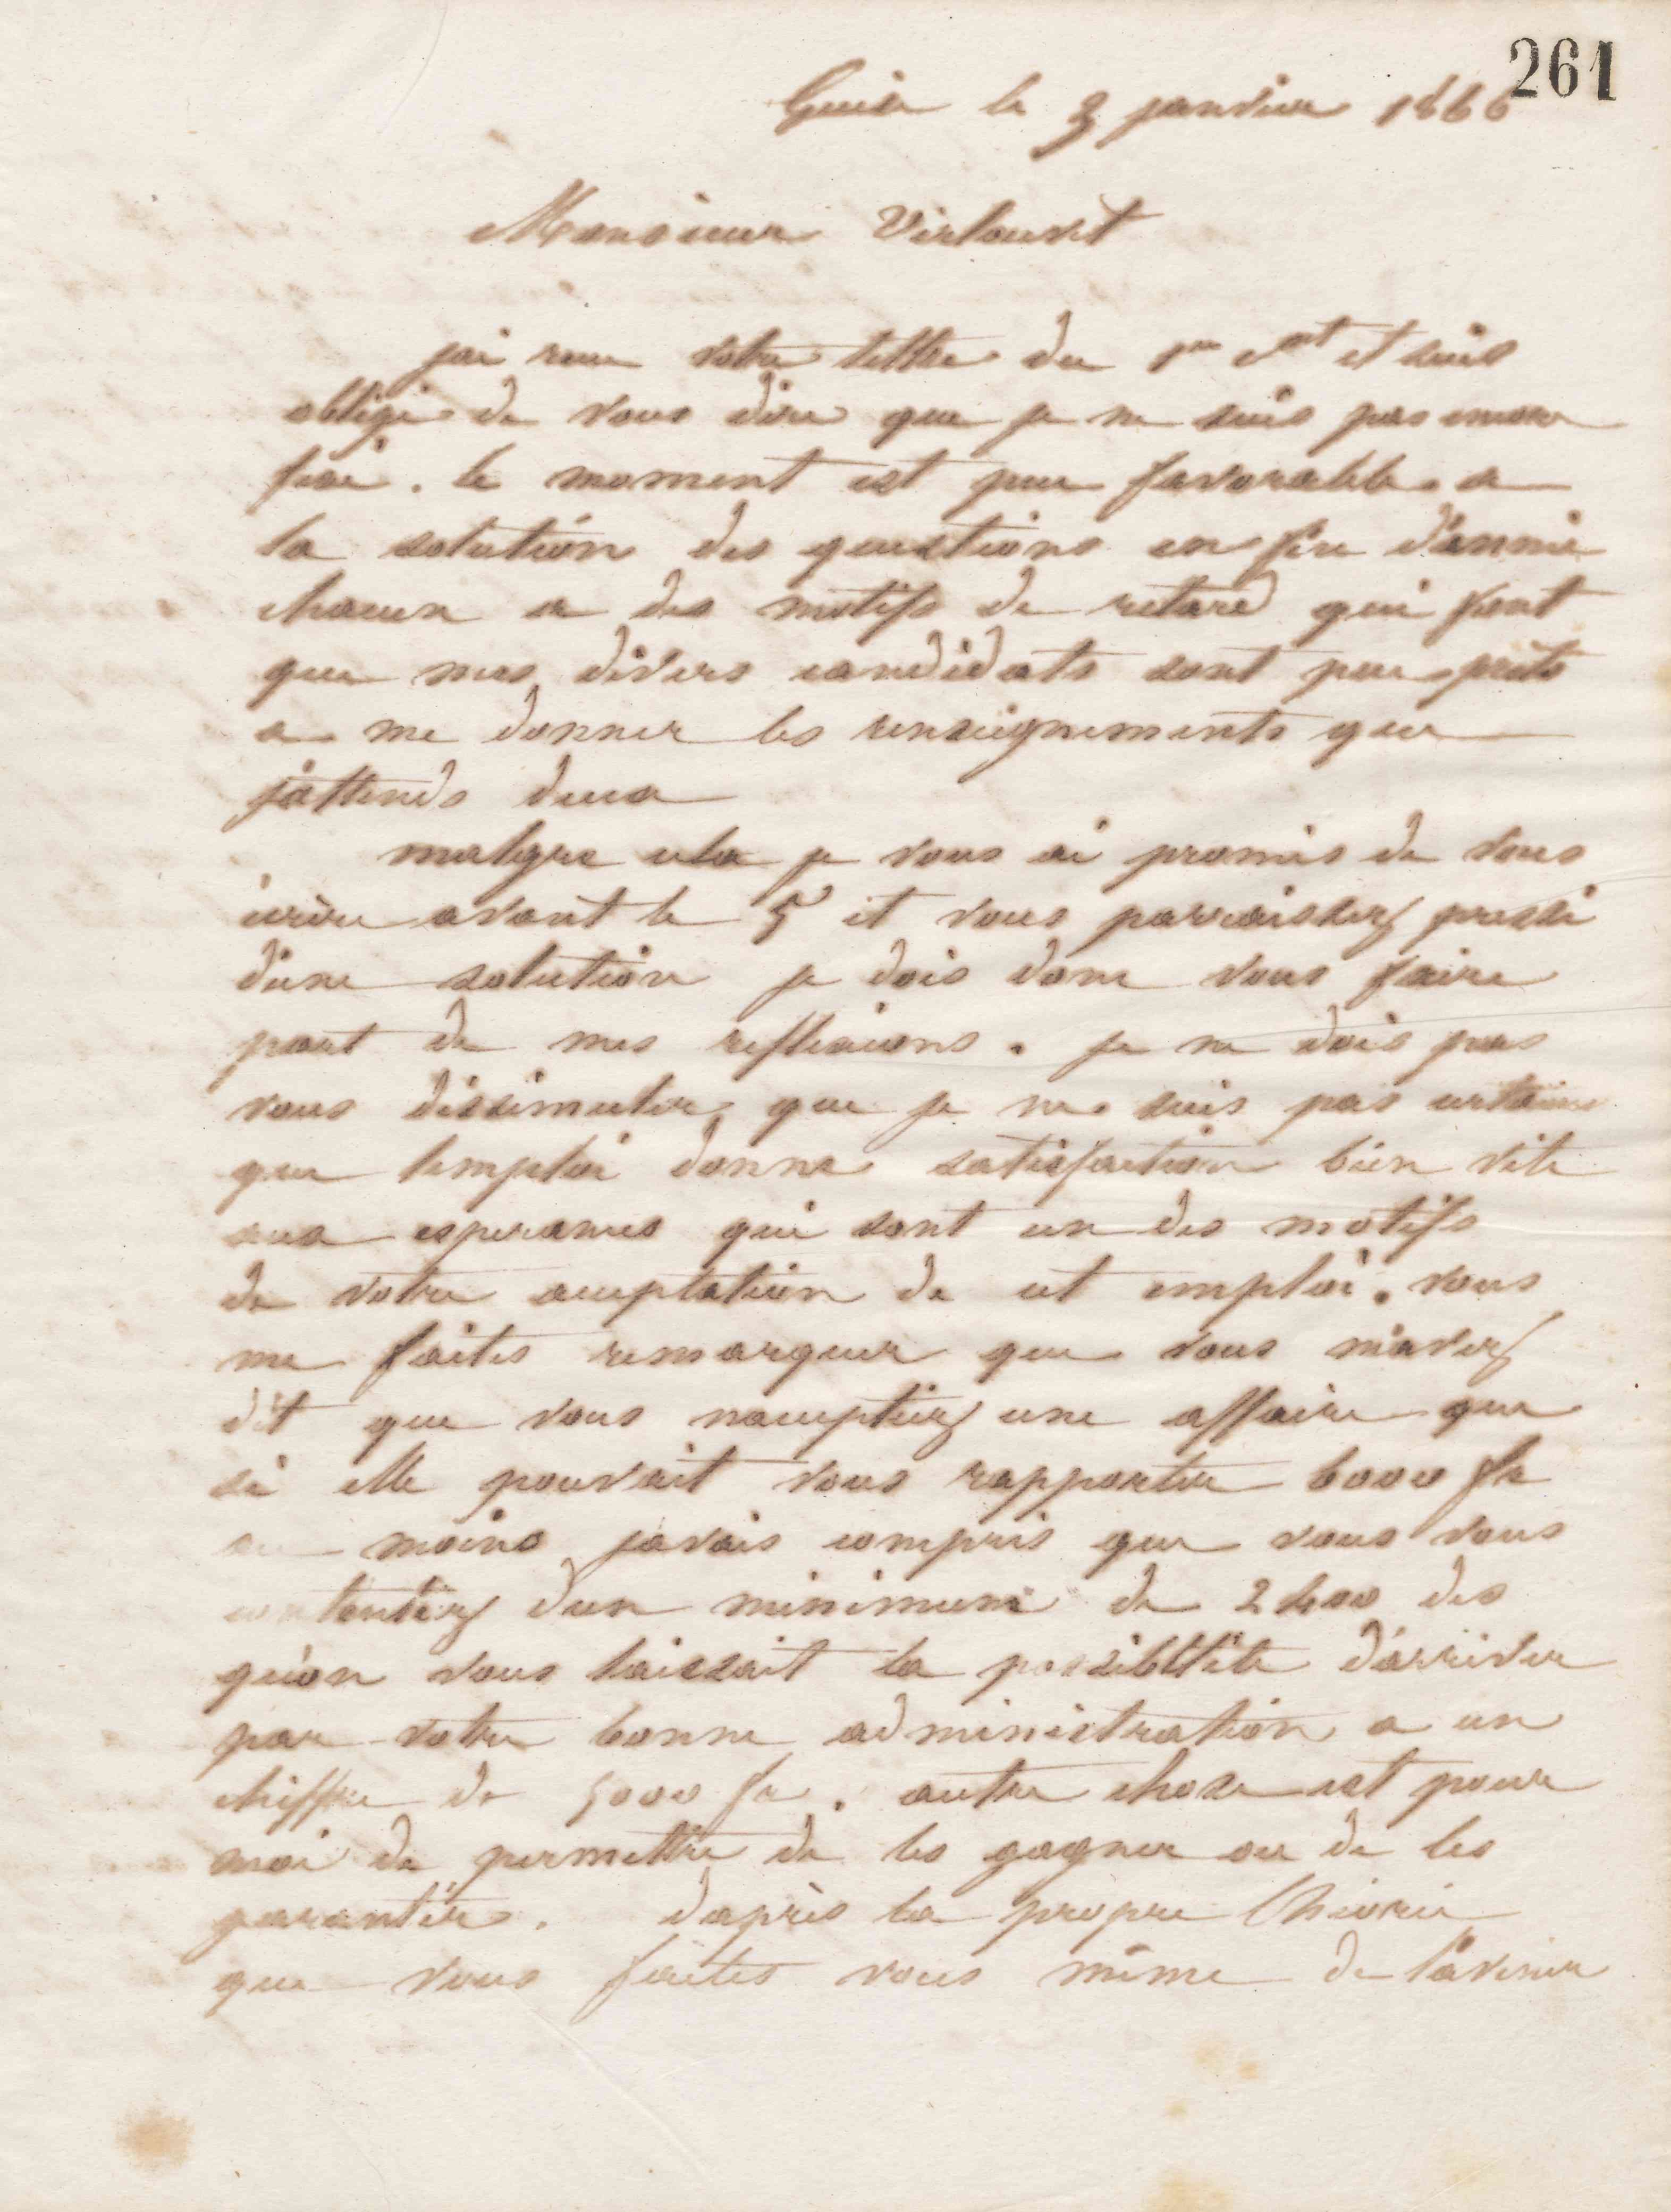 261
Guise le 3 janvier 1866
Monsieur Virlouvet
jai recu votre lettre du 1er ct et suis
obligé de vous dire que je ne suis pas encore
fixé. le moment est peu favorable a
la solution des questions en fin d'année
chacun a des motifs de retard qui font
que mes divers candidats sont peu prêts
a me donner les renseignements que
j'attends deux
malgre cela je vous ai promis de vous
écrire avant le 5 et vous parraissez pressé
d'une solution je dois donc vous faire
part de mes reflexions. je ne dois pas
vous dissimuler que je ne suis pas certain
que lemploi donne satisfaction bien vite
aux esperances qui sont un des motifs
de votre acceptation de cet emploi. vous
me faites remarquer que vous m'avez
dit que vous nacceptiez une affaire que
si elle pouvait vous rapporter 6000 fr
au moins javais compris que vous vous
contentiez dun minimum de 2400 des
qu'on vous laissait la possibilité d'arriver
par votre bonne administration a un
chiffre de 5000 fr. autre chose est pour
moi de permettre de les gagner ou de les
garantir. daprès la propre théorie
que vous faites vous même de l'avenir